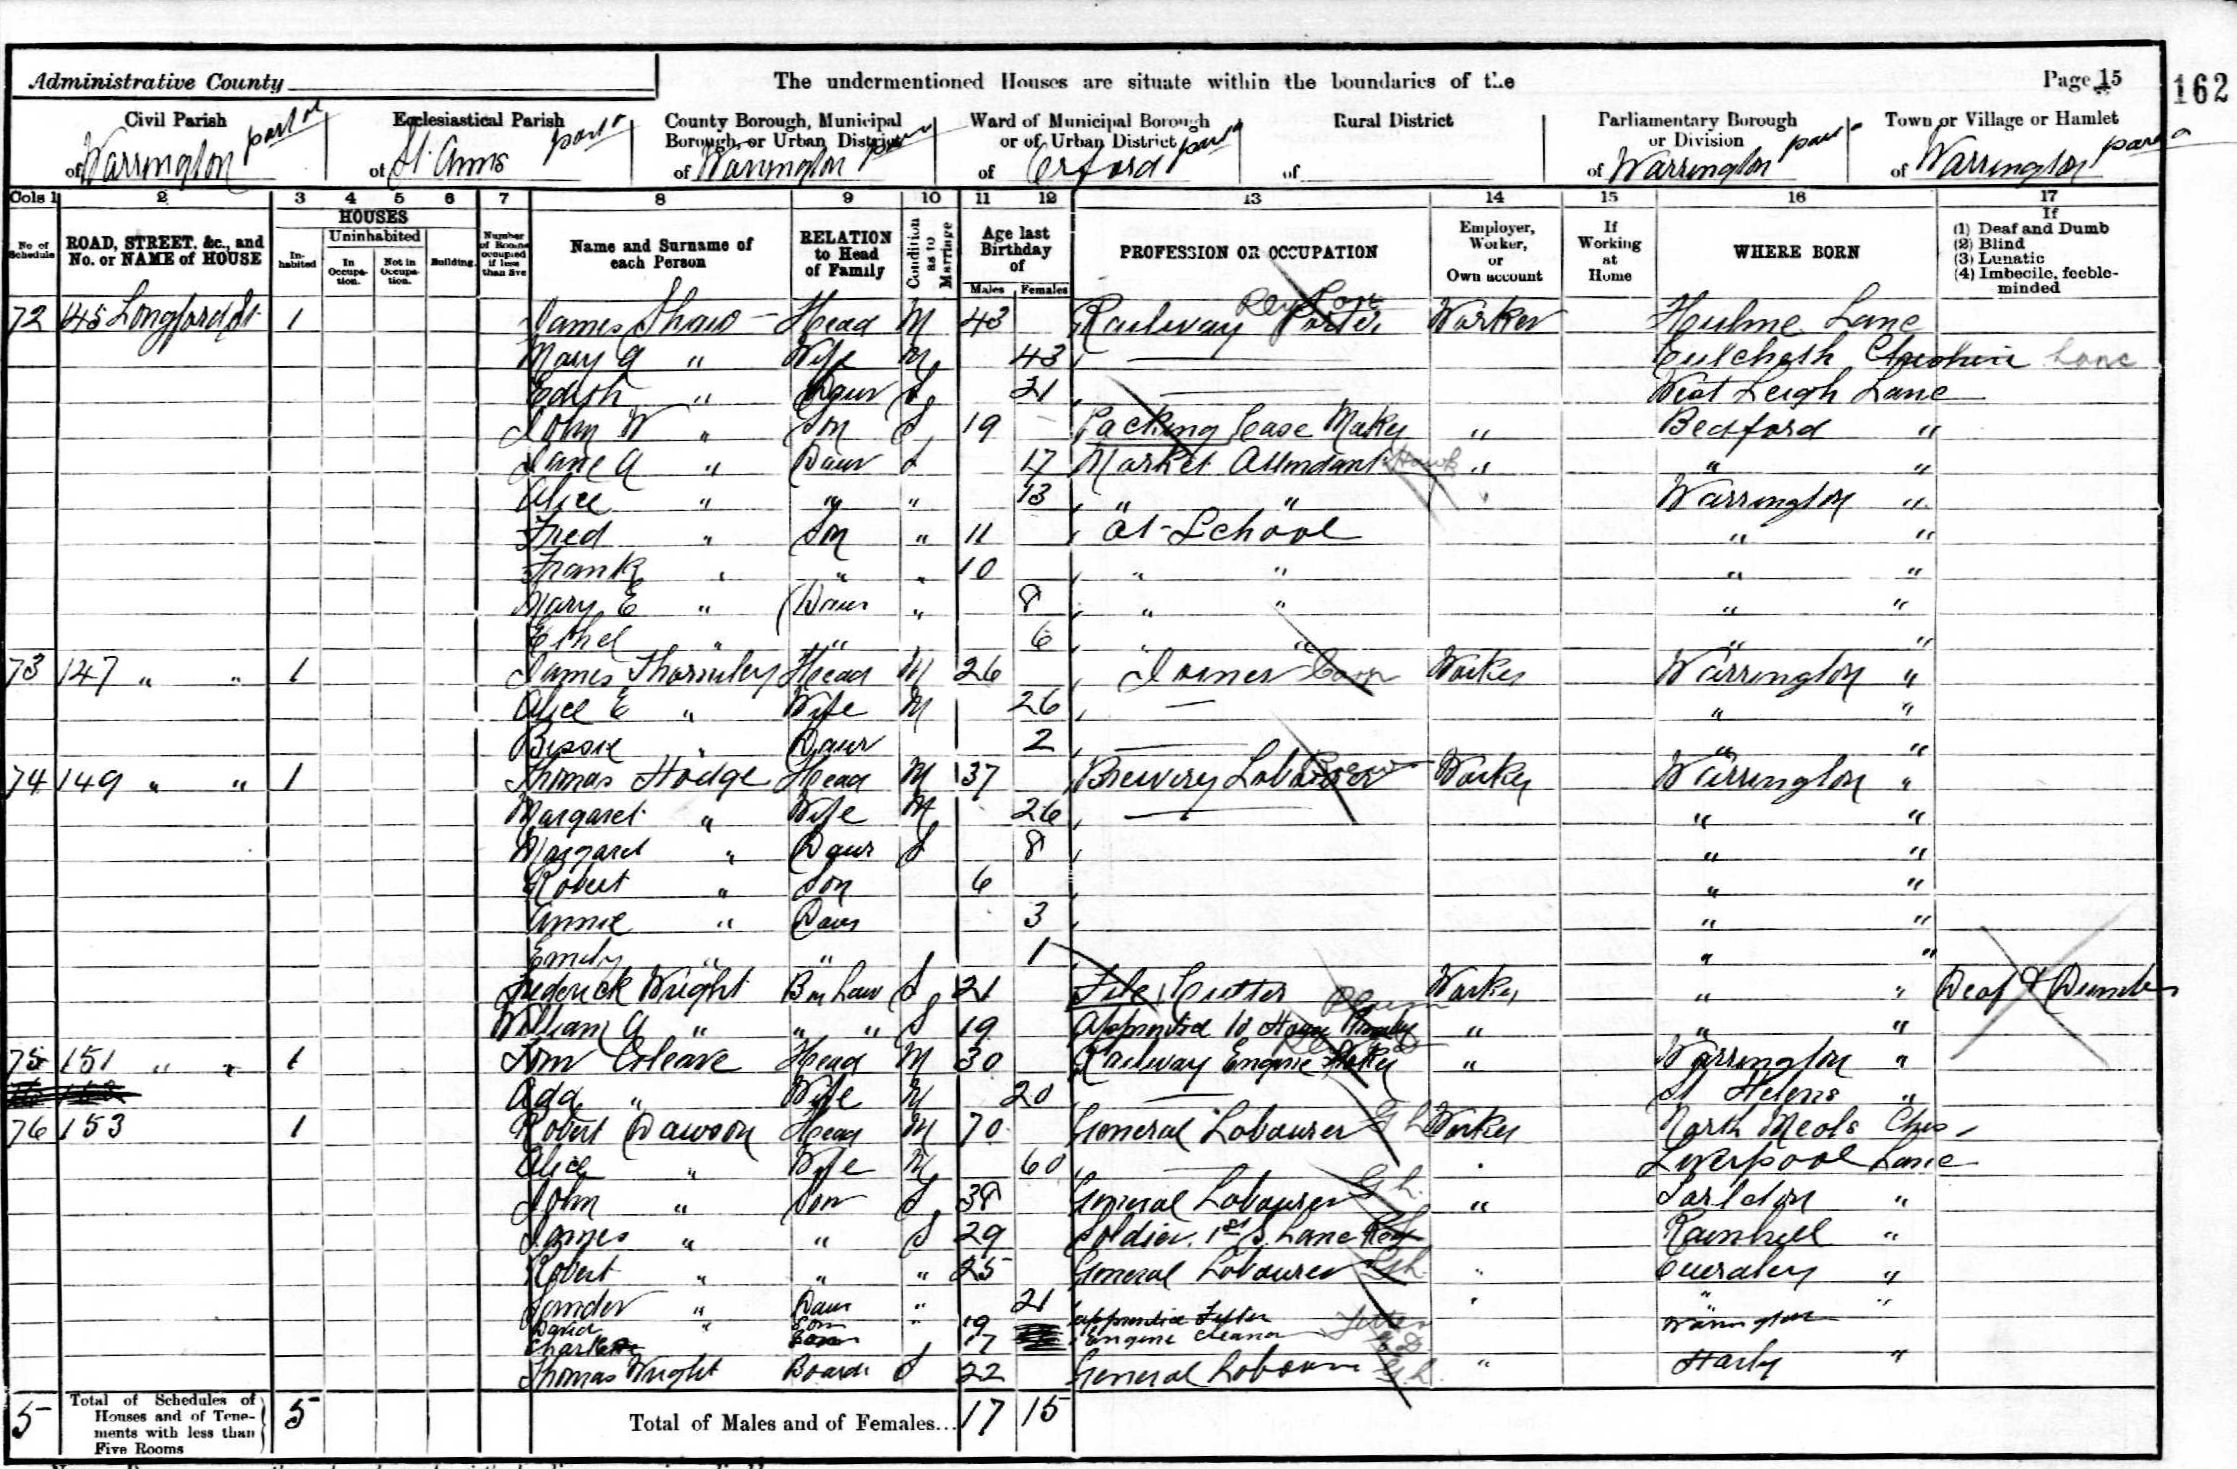 Administrative County
The undermentioned Houses are situate within the boundaries of the
Page 15
162
Civil Parish
of Warrington part of
Ecclesiastical Parish
of St. Anns part of
County Borough, Municipal Borough, or Urban District
of Warrington part
Ward of Municipal Borough or of Urban District
of Orford part
Rural District
of
Parliamentary Borough or Division
of Warrington part
Town or Village or Hamlet
of Warrington part
Cols 1 2 3 4 5 6 7 8 9 10 11 12 13 14 15 16 17
No of Schedule
ROAD, STREET, &c., and No. or NAME of HOUSE
HOUSES
Inhabited
Uninhabited
In Occupation.
Not in Occupation.
Building.
Number of Rooms occupied if less than five
Name and Surname of each Person
RELATION to Head of Family
Condition as to Marriage
Age last Birthday of
Males Females
PROFESSION OR OCCUPATION
Employer, Worker, or Own account
If Working at Home
WHERE BORN
If
(1) Deaf and Dumb
(2) Blind
(3) Lunatic
(4) Imbecile, feeble-minded
72 145 Longford St. 1 James Shaw Head M 43 Railway Porter Worker Hulme Lanc
Mary A " Wife M 43 — Culcheth Cheshire Lanc
Edith " Daur S 21 — West Leigh Lanc
John W " Son S 19 Packing Case Maker " Bedford "
Jane A " Daur S 17 Market Attendant " " "
Alice " " " 13 " " " Warrington "
Fred " Son " 11 at School " "
Frank " " " 10 " " " "
Mary E " Daur " 8 " " " "
Ethel " " 6 " " " "
73 147 " " 1 James Thornley Head M 26 Joiner Worker Warrington "
Alice E " Wife M 26 — " "
Bessie " Daur 2 — " "
74 149 " " 1 Thomas Hodge Head M 37 Brewery Labourer Worker Warrington "
Margaret " Wife M 26 — " "
Margaret " Daur S 8 " "
Robert " Son 6 " "
Annie " Daur 3 " "
Emily " " 1 " "
Frederick Wright B in Law S 21 File Cutter Worker " " Deaf & Dumb
William A " " " S 19 " " "
75 151 " " 1 Tom Head M 30 Railway Engine Stoker " Warrington "
Ada " Wife M 20 — St Helens "
76 153 1 Robert Dawson Head M 70 General Labourer G L Worker North Meols Ches
Alice " Wife M 60 — Liverpool Lanc
John " Son S 38 General Labourer G L " Tarleton "
James " " S 29 Soldier. 1st S. Lanc Reg Rainhill "
Robert " " " 25 General Labourer G L " Cuerdley "
" Daur " 21 " "
David " Son " 19 apprentice Fitter Fitter Warrington
Son 17 Engine cleaner
Thomas Wright Boarder S 22 General Labourer G.L. " "
5 Total of Schedules of Houses and of Tenements with less than Five Rooms 5 Total of Males and of Females... 17 15